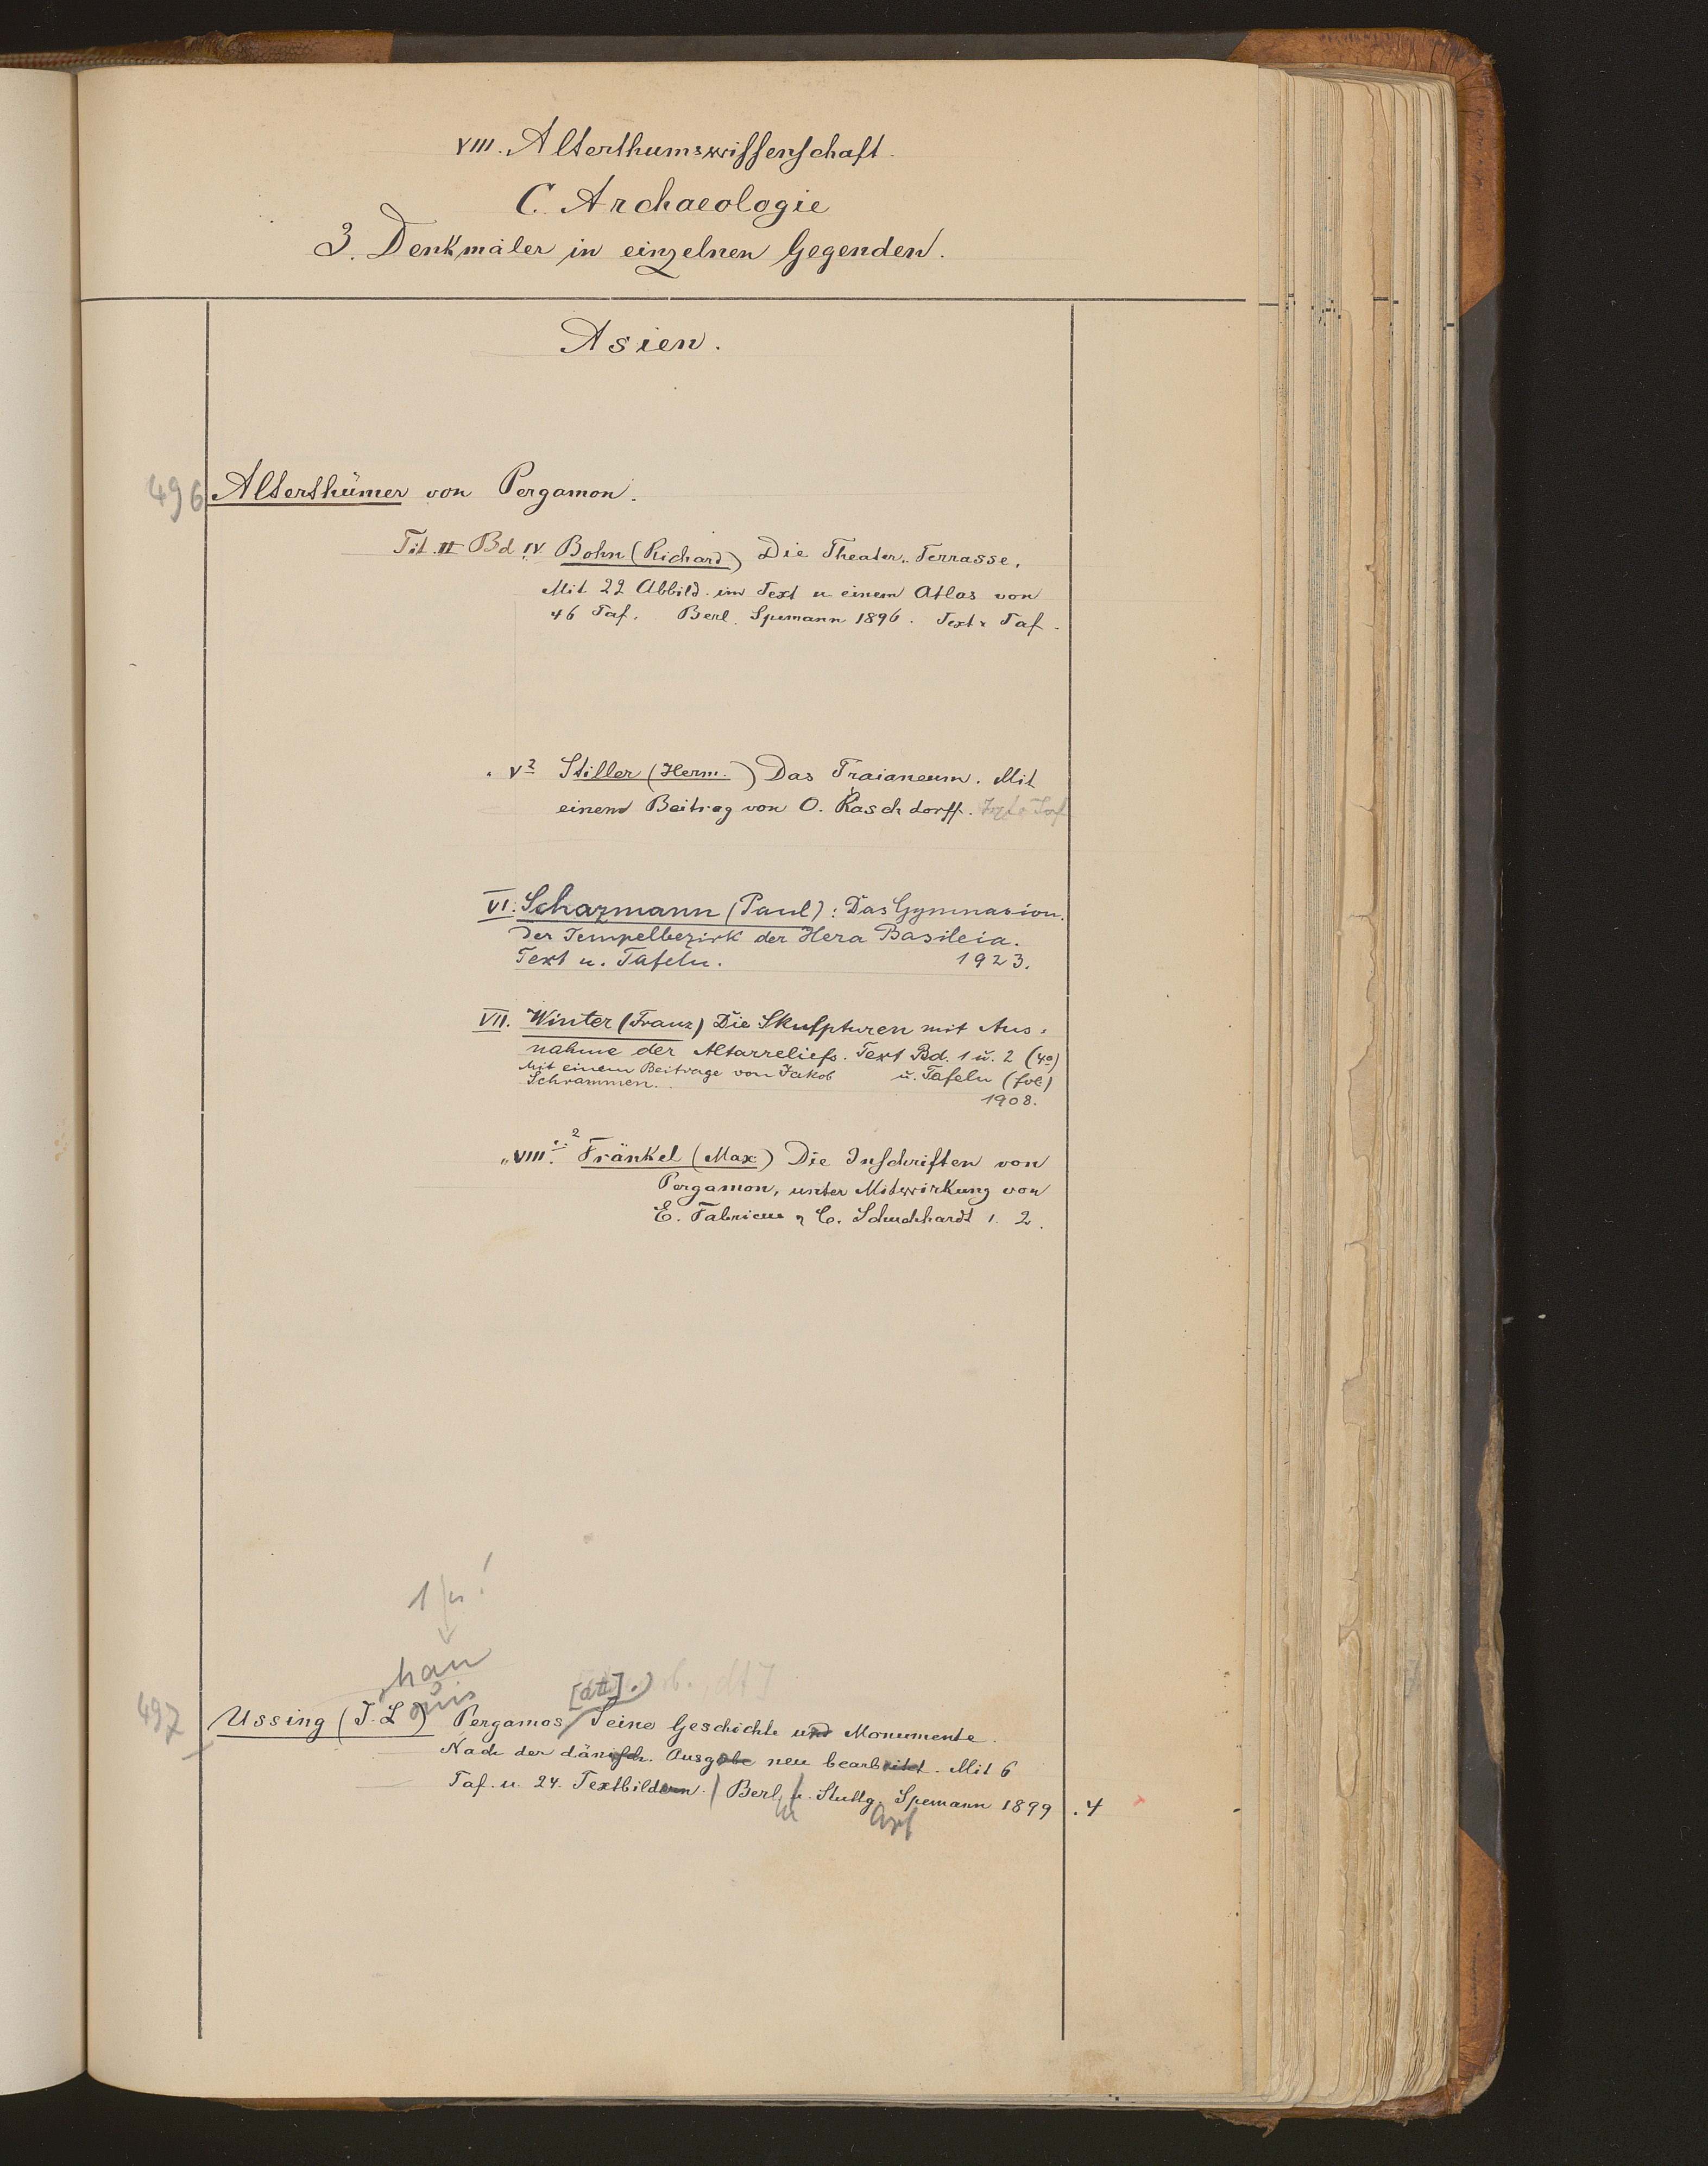 VIII. Alterthumswissenschaft.
C. Archaeologie
3. Denkmäler in einzelnen Gegenden.
Asien.
496 Alterthümer von Pergamon.
Tit. II Bd IV Bohn (Richard) Die Theater-Terrasse.
Mit 22 Abbild. im Text u einem Atlas von
46 Taf. Berl. Spemann 1896. Text u Taf.
" V² Stiller (Herm.) Das Traianeum. Mit
einem Beitrag von O. Raschdorff. Text u Taf
VI. Schazmann (Paul): Das Gymnasion.
Der Tempelbezirk der Hera Basileia.
Text u. Tafeln. 1923.
VII. Winter (Franz) Die Skulpturen mit Aus-
nahme der Altarreliefs. Text Bd. 1 u. 2 (4°)
Mit einem Beitrage von Jakob u. Tafeln (fol)
Schrammen. 1908.
" VIII. 1. 2 Fränkel (Max) Die Inschriften von
Pergamon, unter Mitwirkung von
E. Fabricius u C. Schuchhardt 1. 2.
han
[dt].)
497 Ussing (J. L ouis) Pergamos, Seine Geschichte und Monumente.
Nach der dänisch. Ausgabe neu bearbeitet. Mit 6
Taf. u. 24. Textbildern. / Berl. u. Stuttg. Spemann 1899 . 4
in